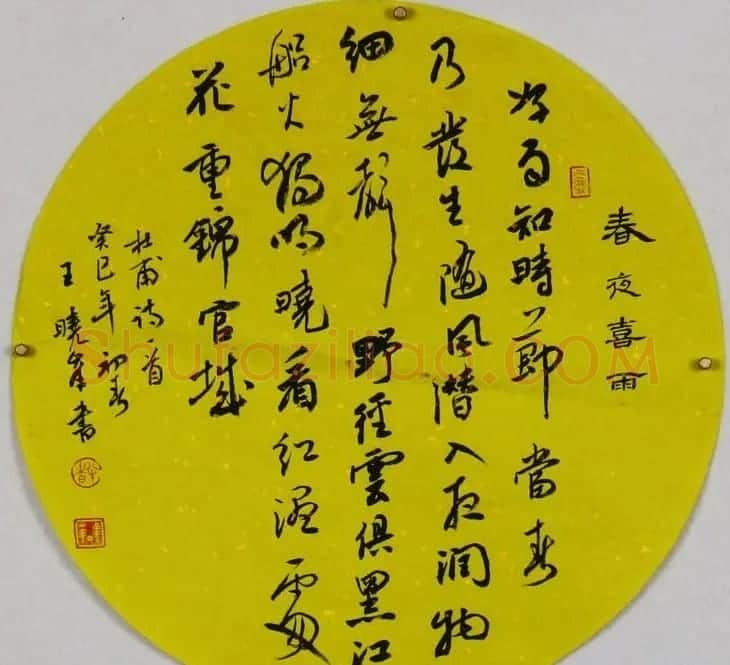 春夜喜雨
好雨知時節當春
乃發生隨風潛入夜潤物
細無聲野徑雲俱黑江
船火獨明曉看紅濕處
花重錦官城
杜甫詩一首
癸巳年初春
王曉書
Shufaziliao.COM